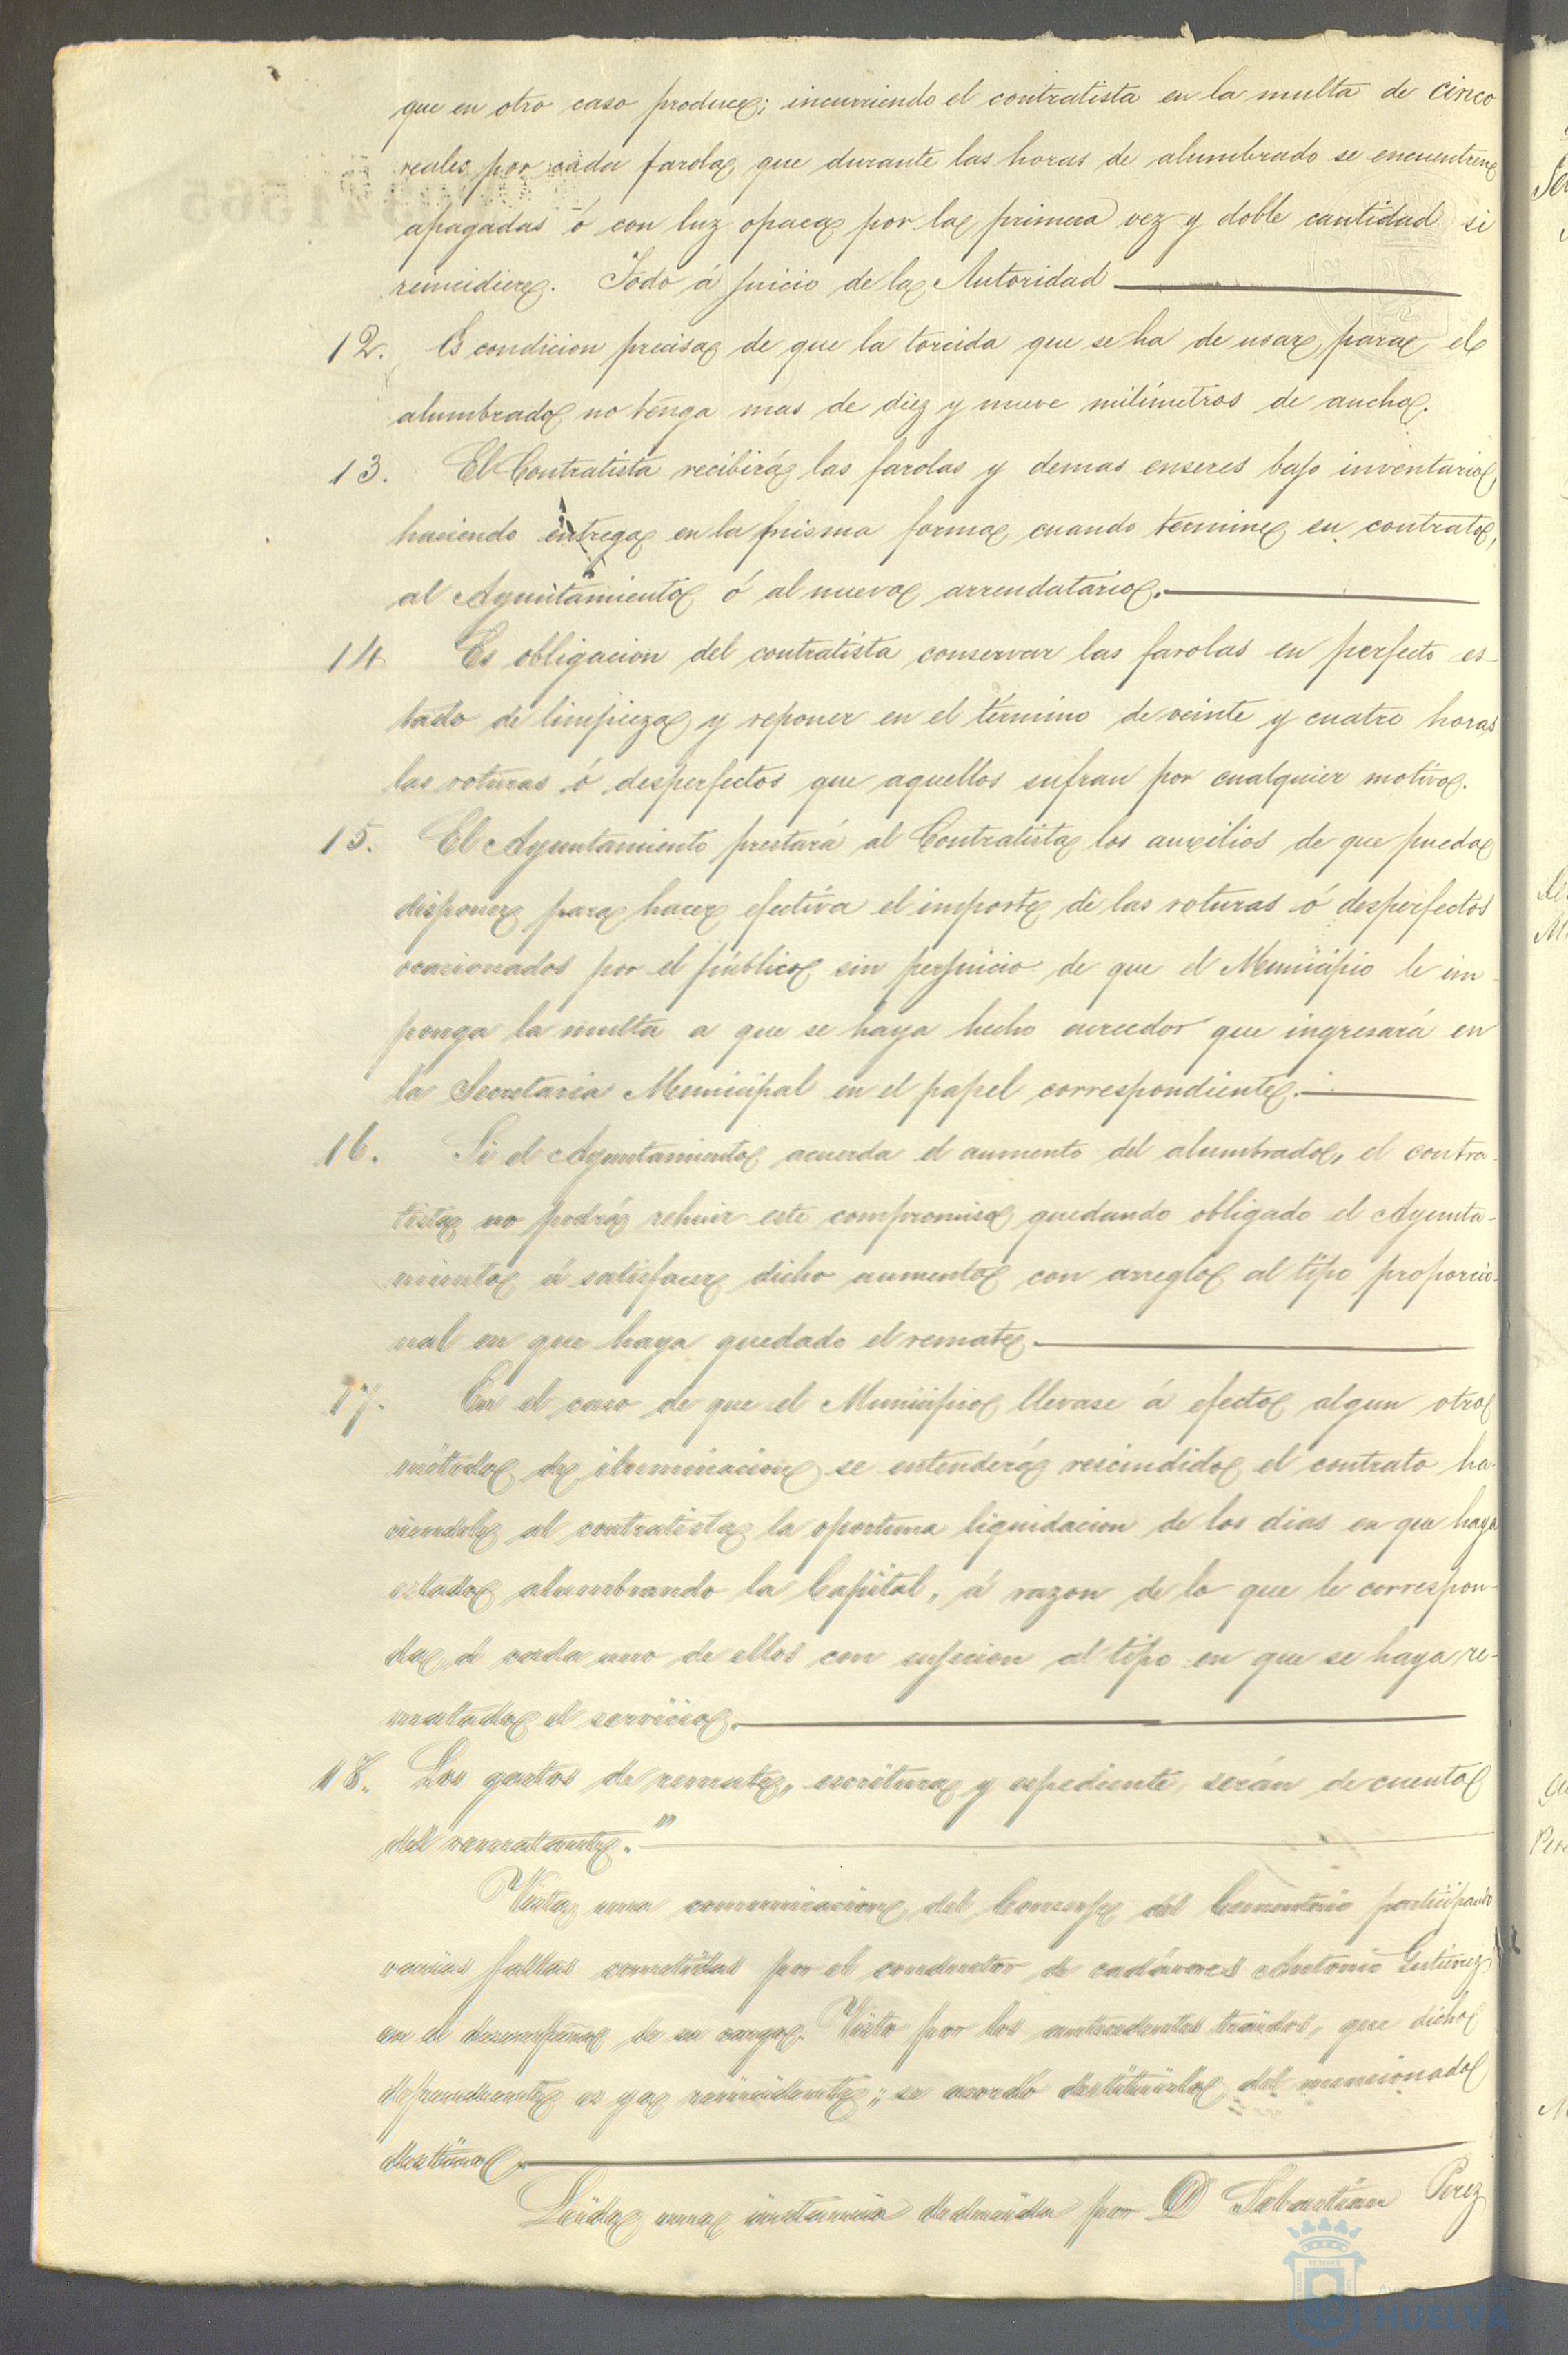 que en otro caso produce; incurriendo el contratista en la multa de cinco
reales por cada farola, que durante las horas de alumbrado se encuentren
apagadas ó con luz opaca por la primera vez y doble cantidad si
reincidiere. Todo á juicio de la Autoridad
12. Es condicion precisa de que la torcida que se ha de usar para el
alumbrado no tenga mas de diez y nueve milímetros de ancho.
13. El Contratista recibirá las farolas y demas enseres bajo inventario,
haciendo entrega en la misma forma, cuando termine su contrato,
al Ayuntamiento ó al nuevo arrendatario.
14 Es obligacion del contratista conservar las farolas en perfecto es-
tado de limpieza y reponer en el término de veinte y cuatro horas
las roturas ó desperfectos que aquellos sufran por cualquier motivo.
15. El Ayuntamiento prestará al Contratista los aucilios de que pueda
disponer para hacer efectiva el importe de las roturas ó desperfectos
ocasionados por el público sin perjuicio de que el Municipio le im-
ponga la multa a que se haya hecho acreedor que ingresará en
la Secretaria Municipal en el papel correspondiente.
16. Si el Ayuntamiento acuerda el aumento del alumbrado, el contra-
tista no podrá rehuir este compromiso quedando obligado el Ayunta-
miento á satisfacer dicho aumento con arreglo al tipo proporcio-
nal en que haya quedado el remate.
17. En el caso de que el Municipio llevase á efecto algun otro
método de iluminacion se entenderá rescindido el contrato ha-
ciendole al contratista la oportuna liquidacion de los dias en que haya
estado alumbrando la Capital, á razon de lo que le correspon-
da á cada uno de ellos con sujecion al tipo en que se haya re-
matado el servicio.
18. Los gastos de remate, escritura y espediente, serán de cuenta
del rematante."
Vista una comunicacion del Conserje del Cementerio participando
varias faltas cometidas por el conductor de cadáveres Antonio Gutierrez
en el desempeño de su cargo. Visto por los antecedentes traidos, que dicho
dependiente es ya reincidente; se acordó destituirlo del mencionado
destino.
Leida una instancia deducida por D Sebastian Perez
HUELVA